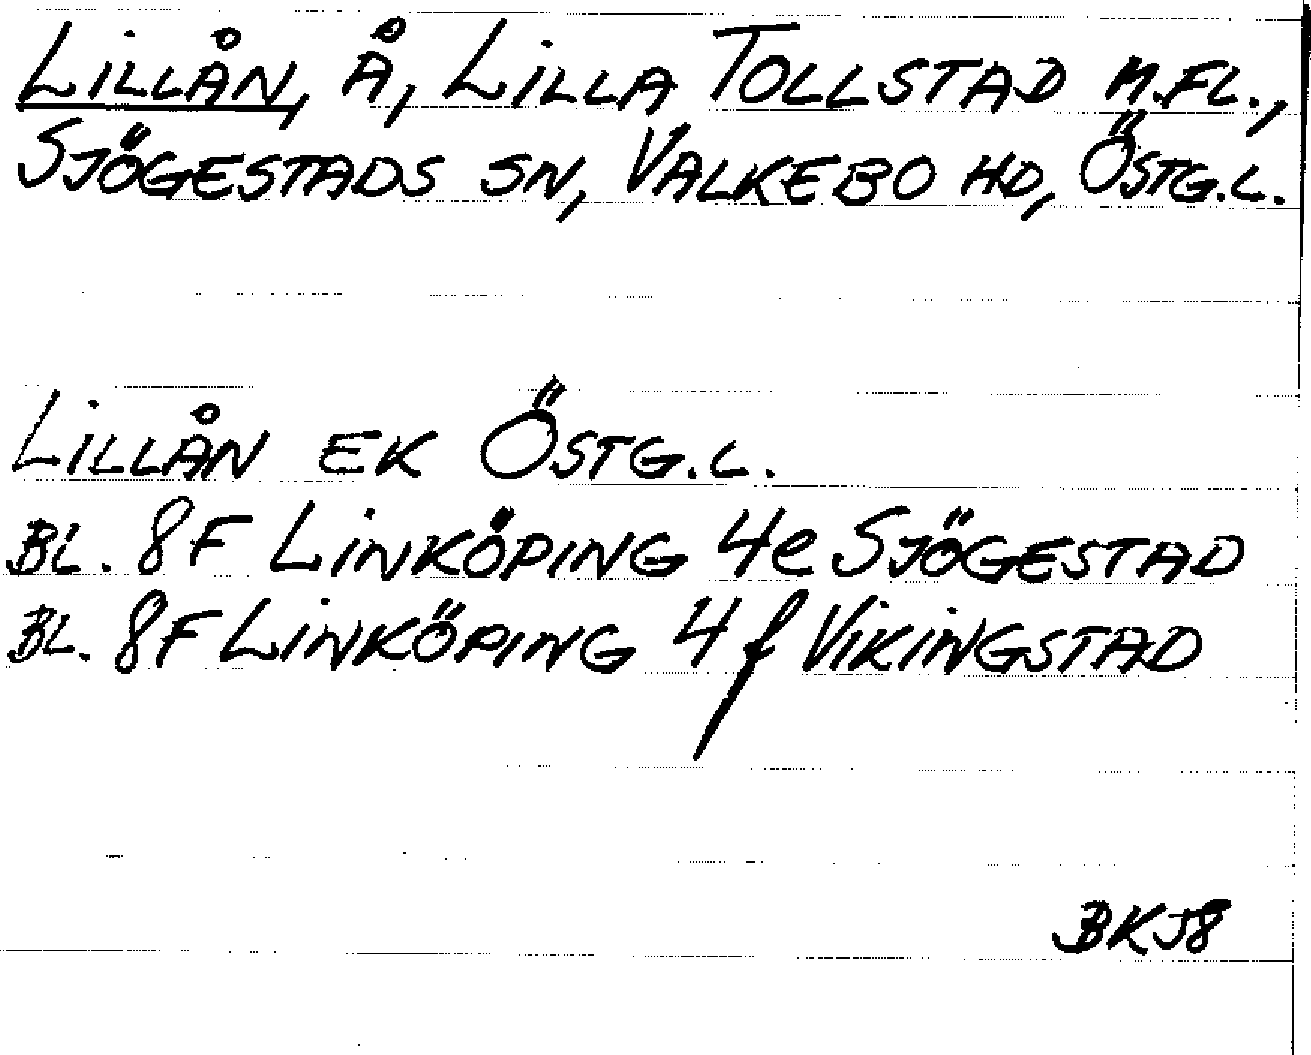 LILLÅN, Å, LILLA TOLLSTAD M.FL.,
SJÖGESTADS SN, VALKEBO HD, ÖSTG.L.
LILLÅN EK ÖSTG.L.
BL. 8F LINKÖPING 4e SJÖGESTAD
BL. 8F LINKÖPING 4f VIKINGSTAD
BKJ8